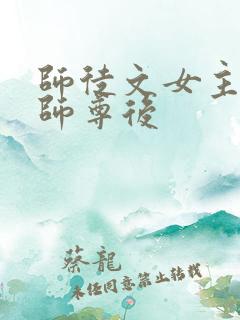 師徒文女主
師尊後
蔡龍
未经同意禁止转载